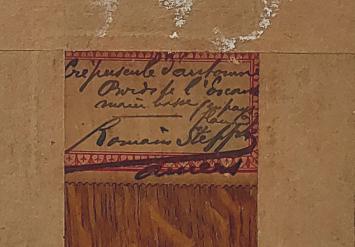 Crépuscule d'automne
Bords de l'Escaut
marée basse
Romain Steppe
Anvers